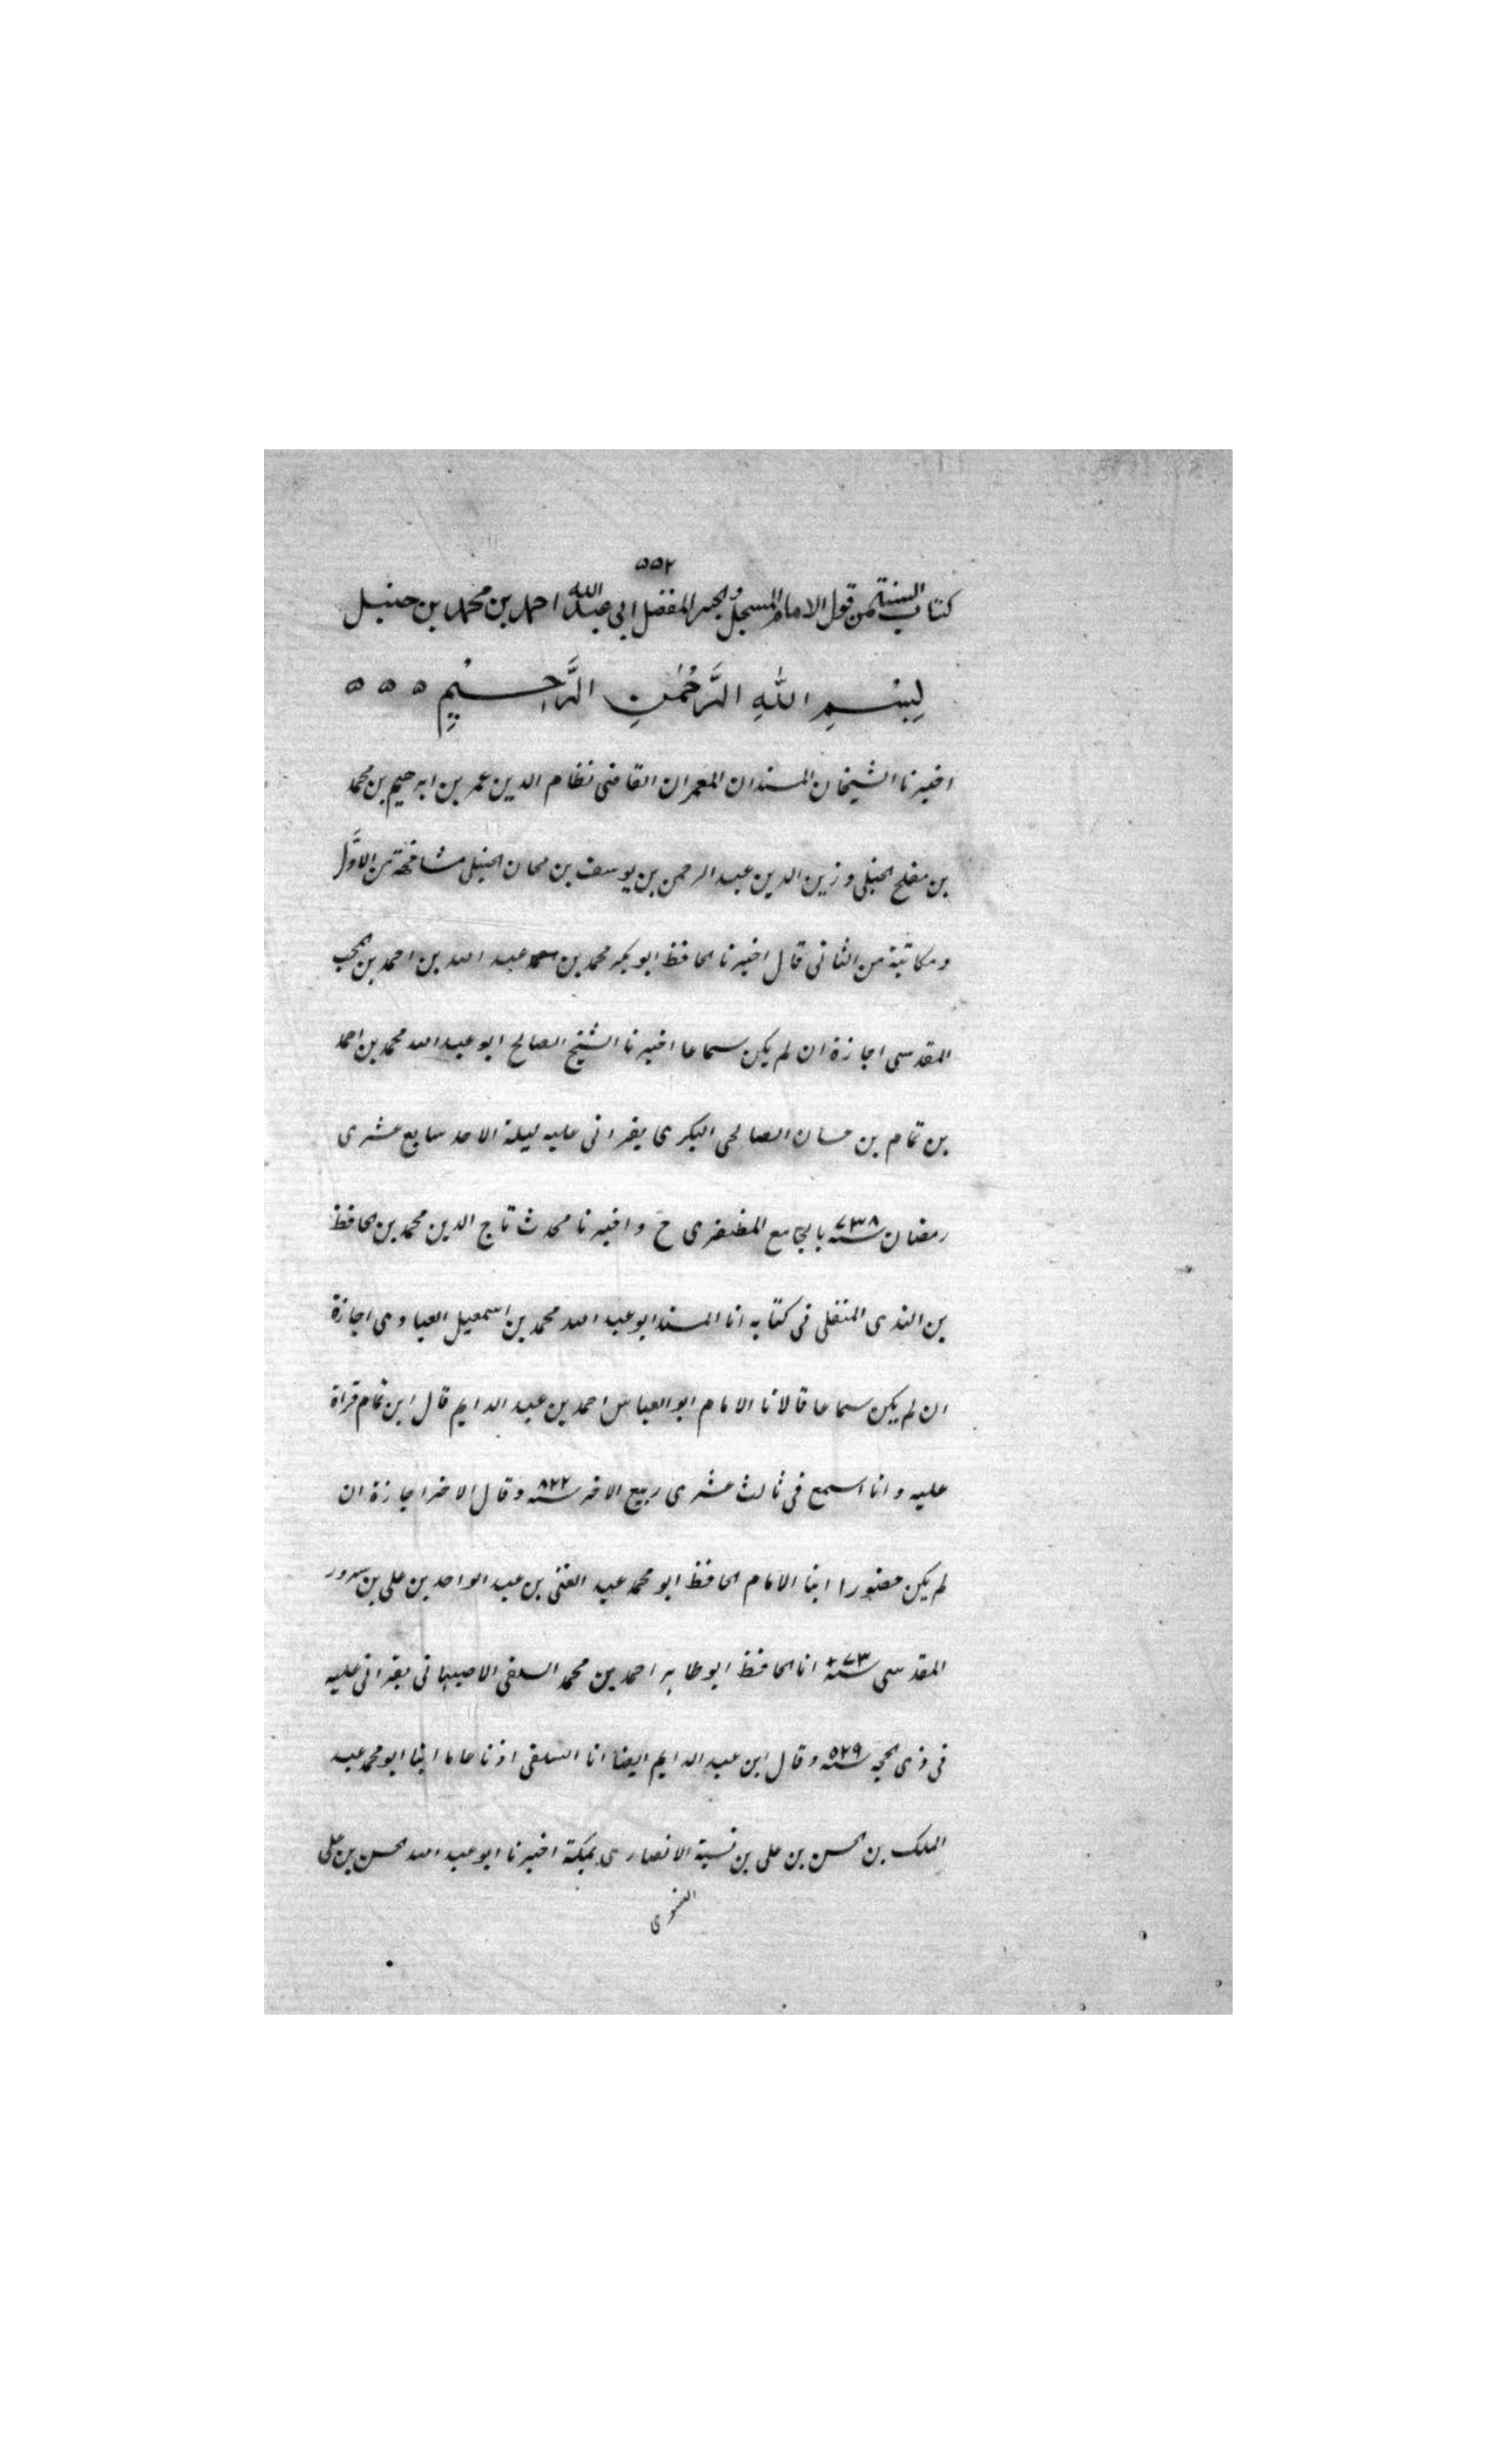 ۵۵۲
كتاب السنة من قول الامام المبجل والحبر المفضل ابى عبد الله احمد بن محمد بن حنبل
بِسْمِ اللهِ الرَّحْمٰنِ الرَّحِيْمِ ٥ ٥ ٥
اخبرنا الشيخان المسندان المعمران القاضى نظام الدين عمر بن ابرهيم بن محمد
بن مفلح الحنبلى وزين الدين عبد الرحمن بن يوسف بن الحنبلى مشافهة من الاوَّل
ومكاتبة من الثانى قال اخبرنا الحافظ ابو بكر محمد بن عبد الله بن احمد بن المحب
المقدسى اجازة ان لم يكن سماعا اخبرنا الشيخ الصالح ابو عبد الله محمد بن احمد
بن تمام بن حسان الصالحى البكرى بقرانى عليه ليلة الاحد سابع عشرى
رمضان سنه ٧٣٨ بالجامع المظفرى ح واخبرنا محدث تاج الدين محمد بن الحافظ
بن الندى فى كتابه انا المسند ابو عبد الله محمد بن اسمعيل العباوى اجازة
ان لم يكن سماعا قالا نا الامام ابو العباس احمد بن عبد الدايم قال ابن تمام قراة
عليه وانا اسمع فى ثالث عشرى ربيع الاخر سنه ٨٢٢ وقال الاخر اجازة ان
لم يكن حضورا انبا الامام الحافظ ابو محمد عبد الغنى بن عبد الواحد بن على بن سرور
المقدسى سنة انا الحافظ ابو طاهر احمد بن محمد السلفى الاصبهانى بقرانى عليه
فى ذى الحجه سنه ٥٢٩ وقال ابن عبد الدايم ايضا انا السلفى اذنا عاما انبا ابو محمد عبد
الملك بن الحسن بن على بن نسبة الانصارى بمكة اخبرنا ابو عبد الله الحسن بن على